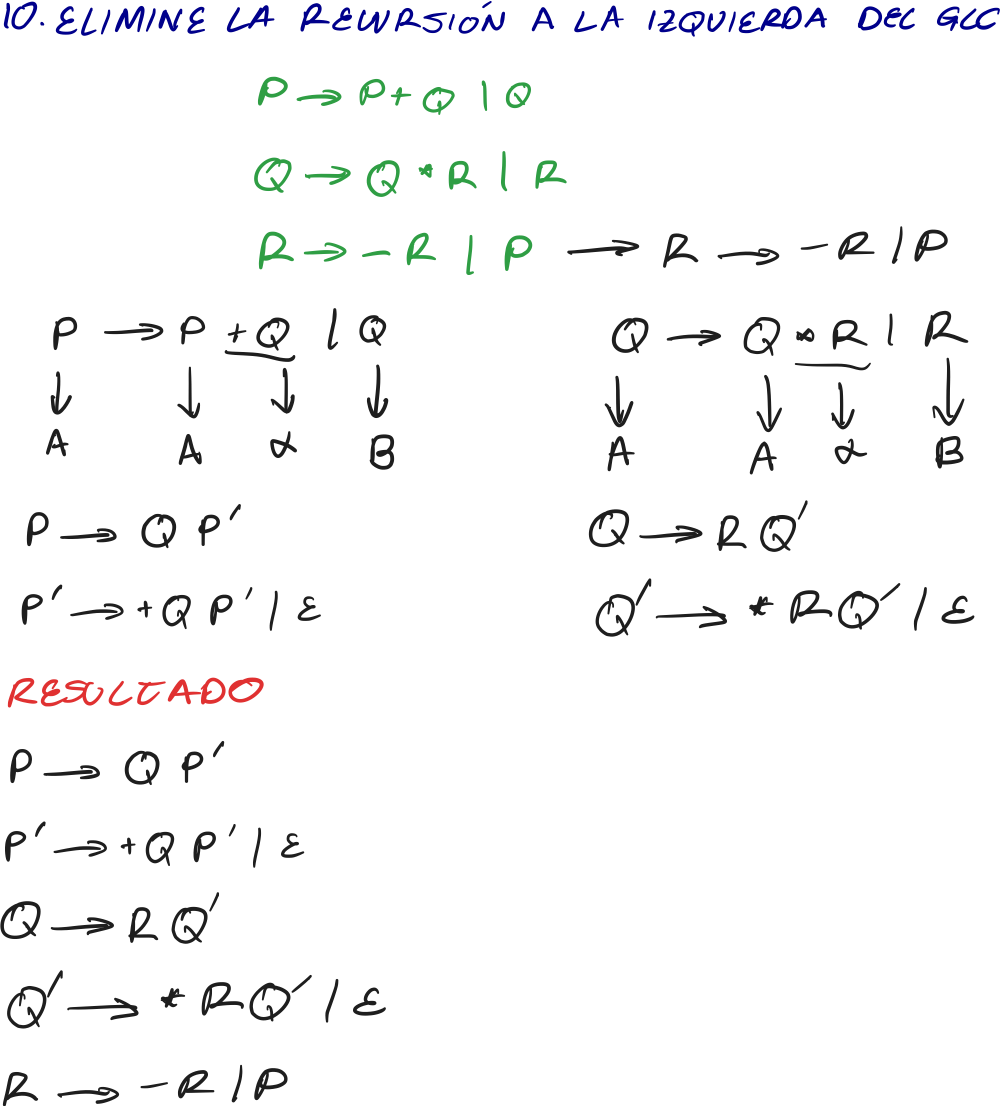 10. ELIMINE LA RECURSIÓN A LA IZQUIERDA DEL GLC
P → P + Q | Q
Q → Q * R | R
R → - R | P → R → - R | P
P → P + Q | Q
↓ ↓ ↓ ↓
A A α B
P → Q P'
P' → + Q P' | ε
Q → Q * R | R
↓ ↓ ↓ ↓
A A α B
Q → R Q'
Q' → * R Q' | ε
RESULTADO
P → Q P'
P' → + Q P' | ε
Q → R Q'
Q' → * R Q' | ε
R → - R | P